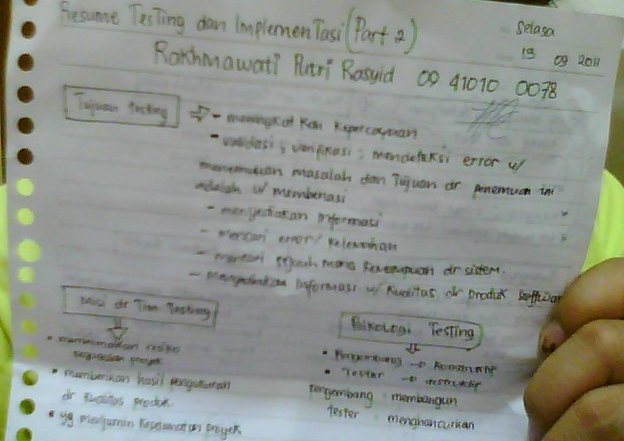 Resume Testing dan Implementasi (Part 2)
Selasa
13 09 2011
Rakhmawati Putri Rasyid 09 41010 0078
Tujuan testing
- meningkatkan kepercayaan
- validasi ; verifikasi ; mendeteksi error u/
menemukan masalah dan Tujuan dr penemuan ini
adalah u/ membenasi
- menyediakan informasi
- mencari error / kelemahan
- mencari sejauh mana kemampuan dr sistem.
- menyediakan informasi u/ kualitas dr produk software
misi dr Tim Testing
• meminimalkan resiko
kegagalan proyek
• memberikan hasil pengukuran
dr kualitas produk.
• yg menjamin keselamatan proyek
Psikologi Testing
• Pengembang → konstruktif
• Tester → destruktif
pengembang : membangun
tester : menghancurkan